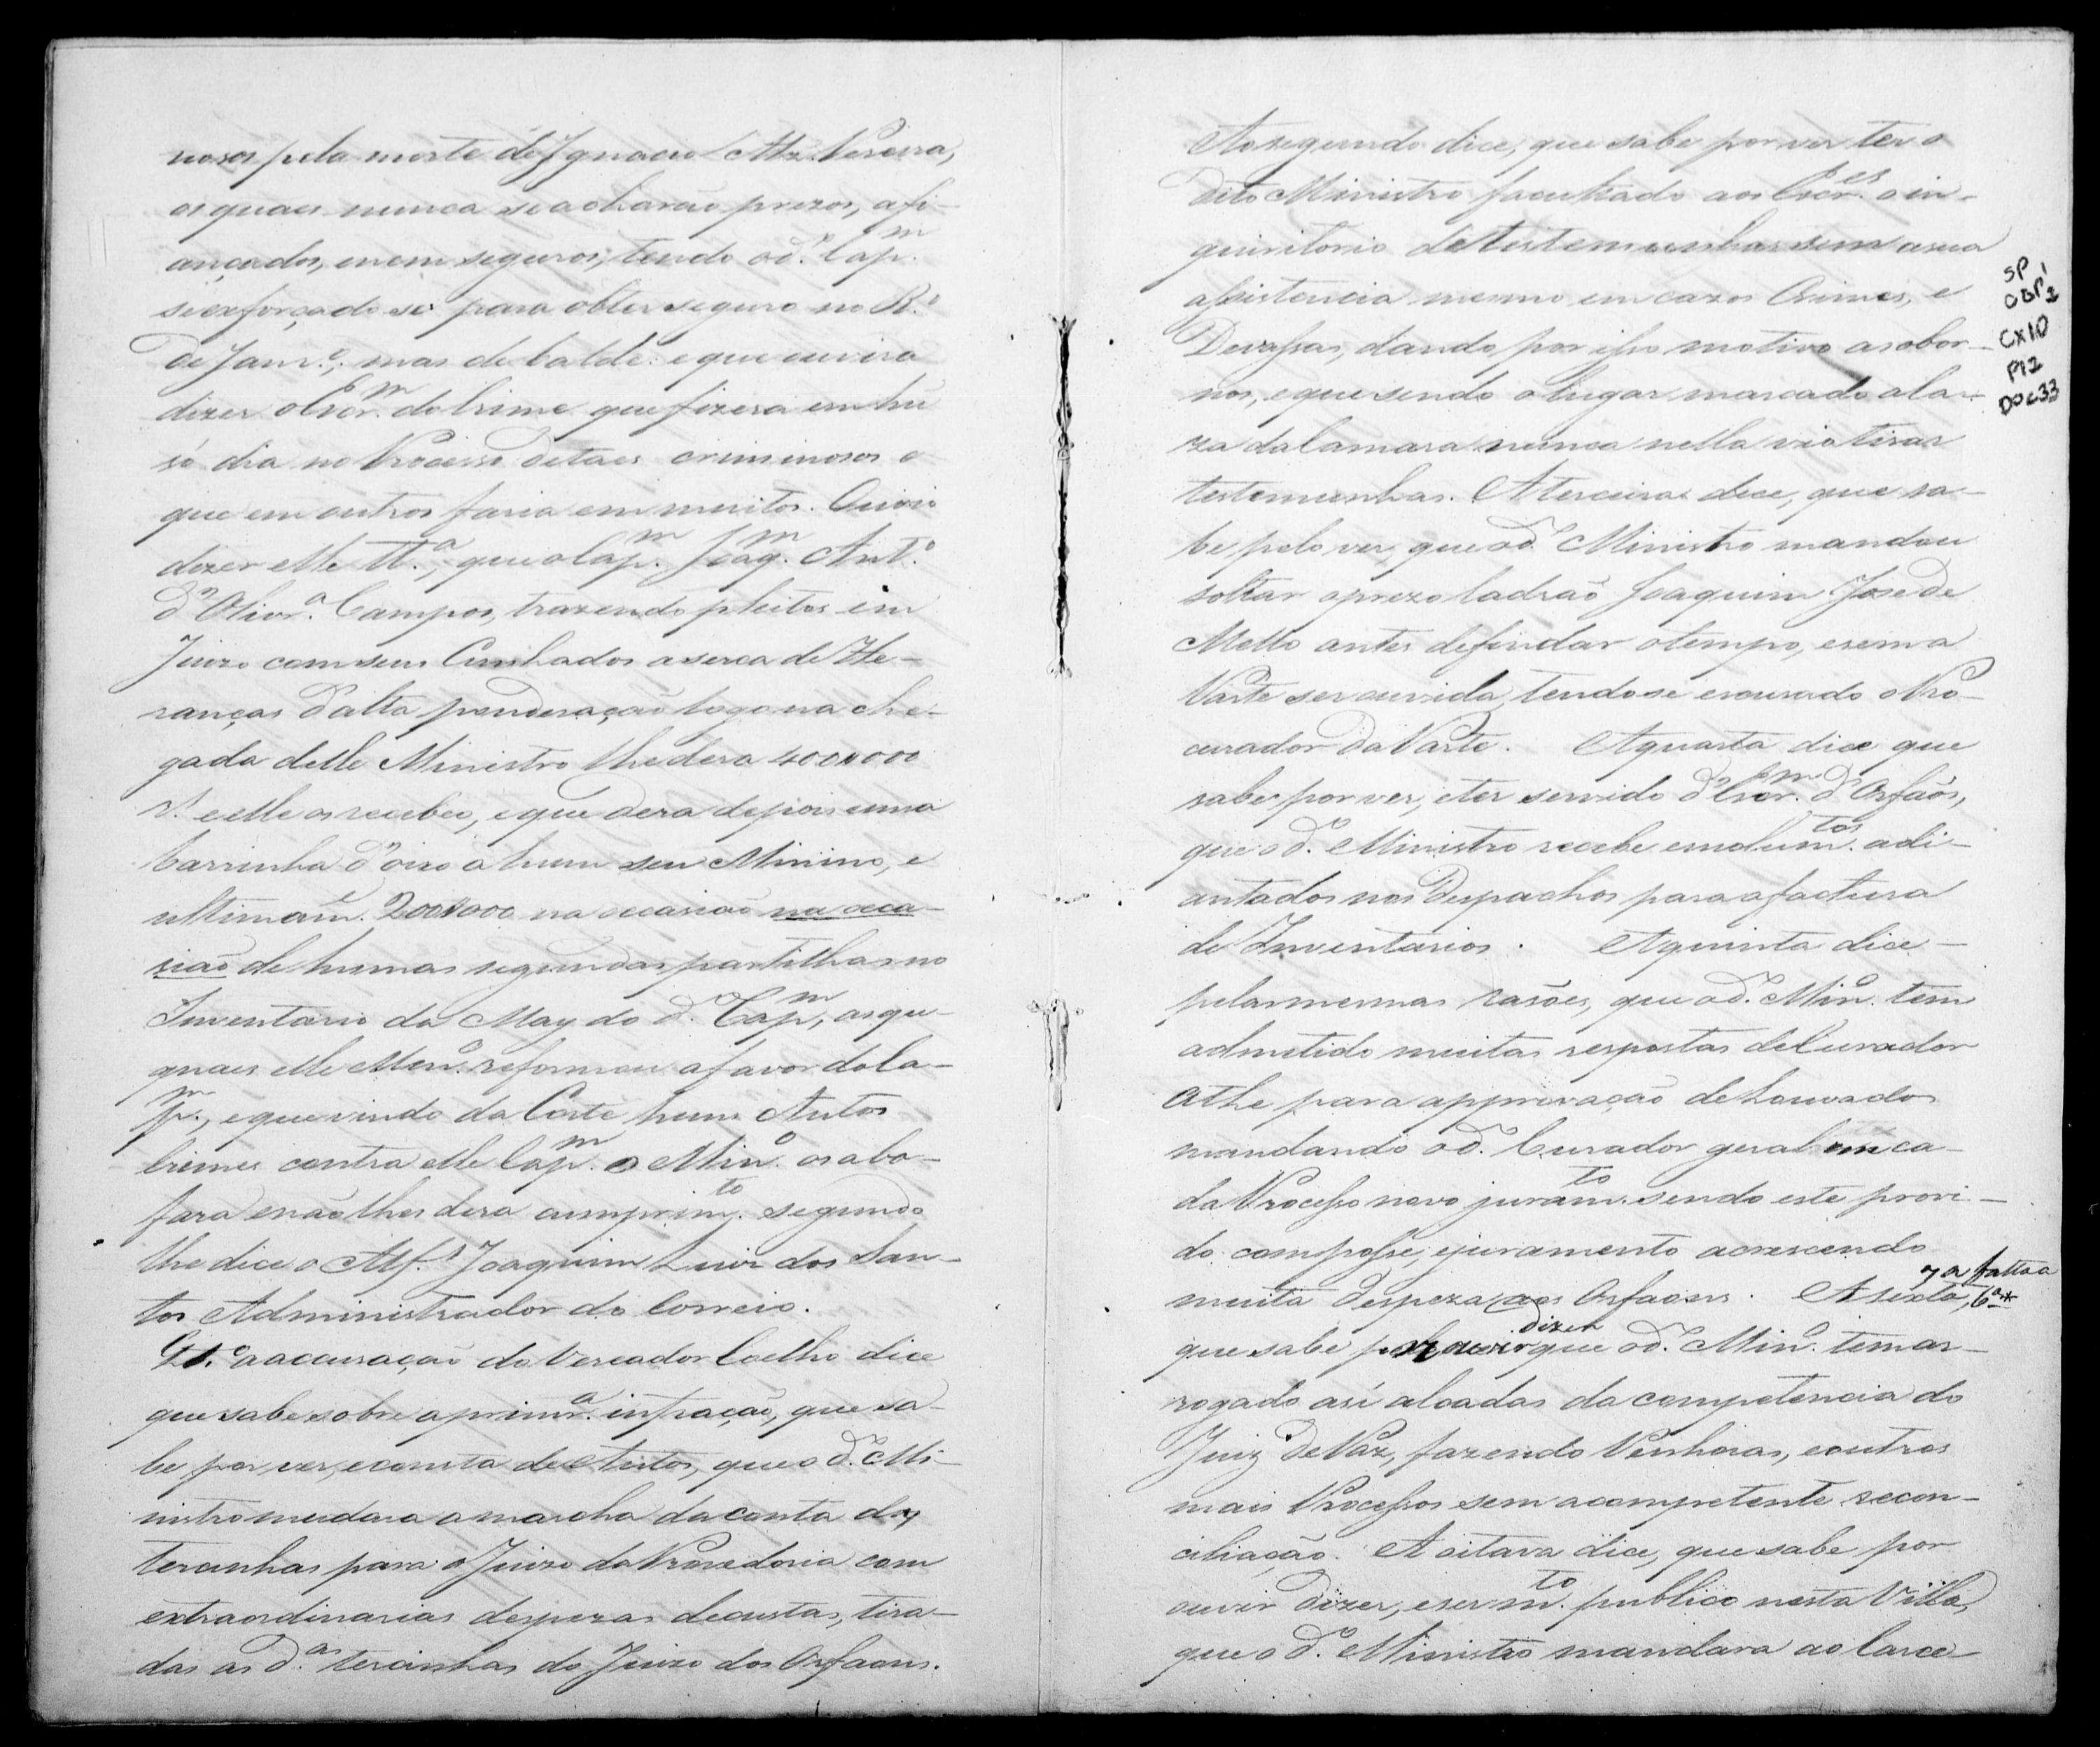 nosos pela morte de Ignacio Alz. Pereira,
os quaes nunca se acharão prezos, afi-
ançados, e nem seguros, tendo o d.º Cap.m
se exforçado se para obter seguro no R.º
de Janr.º, mas de balde: e que ouvira
dizer o Escr.m do Crime que fizera em hũ
só dia no Processo de taes criminosos o
que em outros faria em muitos. Ouvio
dizer elle tt.a, que o Cap.m Joaq.m Ant.º
d'Olivr.a Campos, trazendo pleitos em
Juizo com seus Cunhados aserca de He-
ranças d'alta ponderação logo na che-
gada delle Ministro lhe dera 400$000
r.s e elle os recebeo, e que dera depois uma
barrinha d'oiro a hum seu Minino, e
ultimam.e 200$000 na occasião na occa-
sião de humas segundas partilhas no
Inventario da May do d.º Cap.m, as qu-
quaes elle Min.º reformou a favor do Ca-
p.m, e que vindo da Corte huns Autos
crimes contra elle Cap.m o Min.º os abo-
fara e não lhes dera cumprim.to segundo
lhe dice o Alf.s Joaquim Luiz dos San-
tos Administrador do Correio.
Q.to a accusação do Vereador Coelho dice
que sabe sobre a primr.a infração, que sa-
be por ver, e consta de Autos, que o d.º Mi-
nistro mudara a marcha da conta das
tercinhas para o Juizo da Provedoria com
extraordinarias despezas de custas, tira-
das as d.as tercinhas do Juizo dos Orfaons.
Ao segundo dice, que sabe por ver ter o
dito Ministro facultado aos Escr.es o in-
quiritorio de testemunhas sem a sua
assistencia mesmo em cazos Crimes, e
Devassas, dando por isso motivo a sobor-
nos, e que sendo o lugar marcado a Ca-
za da Camara nunca nella vio tirar
testemunhas. A terceira dice, que sa-
be pelo ver, que o d.º Ministro mandou
soltar o prezo ladrão Joaquim Jose de
Mello antes de findar o tempo, e sem a
Parte ser ouvida, tendo se escusado o Pro-
curador da Parte. A quarta dice que
sabe por ver, e ter servido d'Escr.m d'Orfãos,
que o d.º Ministro recebe emolum.tos adi-
antados nos Despachos para a factura
de Inventarios. A quinta dice
pelas mesmas rasões, que o d.º Min.º tem
admetido muitas respostas de Curador
athe para approvação de Louvados
mandando o d.º Curador geral em ca-
da Processo novo juram.to sendo este provi-
do com posse, e juramento acrescendo
muita despeza aos Orfaons. A sexta, 6ª*
7ª falta a
que sabe por ouvir dizer que o d.º Min.º tem ar-
rogado asi alçadas da competencia do
Juiz de Paz, fazendo Penhoras, e outros
mais Processos sem a competente recon-
ciliação. A oitava dice, que sabe por
ouvir dizer, e ser m.to publico nesta Villa,
que o d.º Ministro mandara ao Carce-
SP
CX10
P12
DOC33